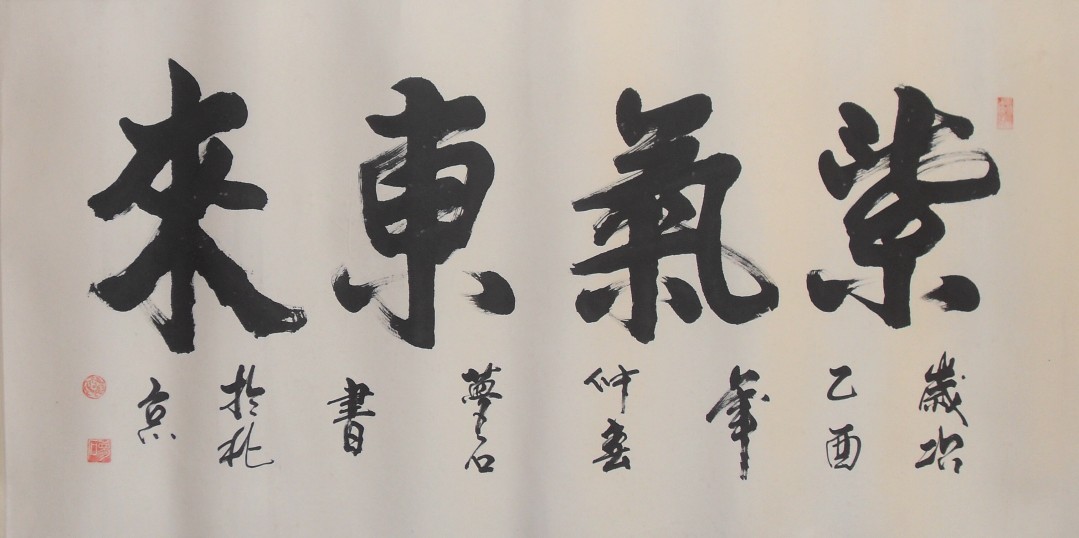 紫氣東來
歲次
乙酉
年
仲春
夢石
書
於北
京